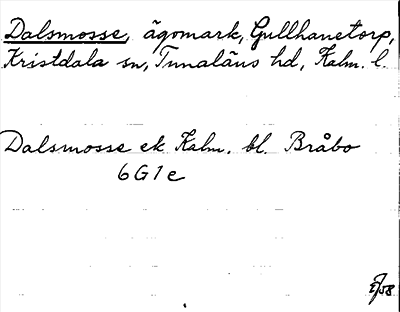 Dalsmosse, ägomark, Gullhanetorp,
Kristdala sn, Tunaläns hd, Kalm. l.
Dalsmosse ek Kalm. bl. Bråbo
6G1e